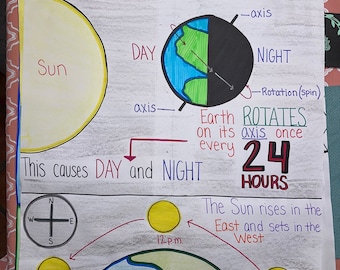 axis
Sun
DAY
NIGHT
Rotation (spin)
axis
Earth ROTATES
on its axis once
every 24
HOURS
This causes DAY and NIGHT
N
W E
S
The Sun rises in the
East and sets in the
West
12 p.m.